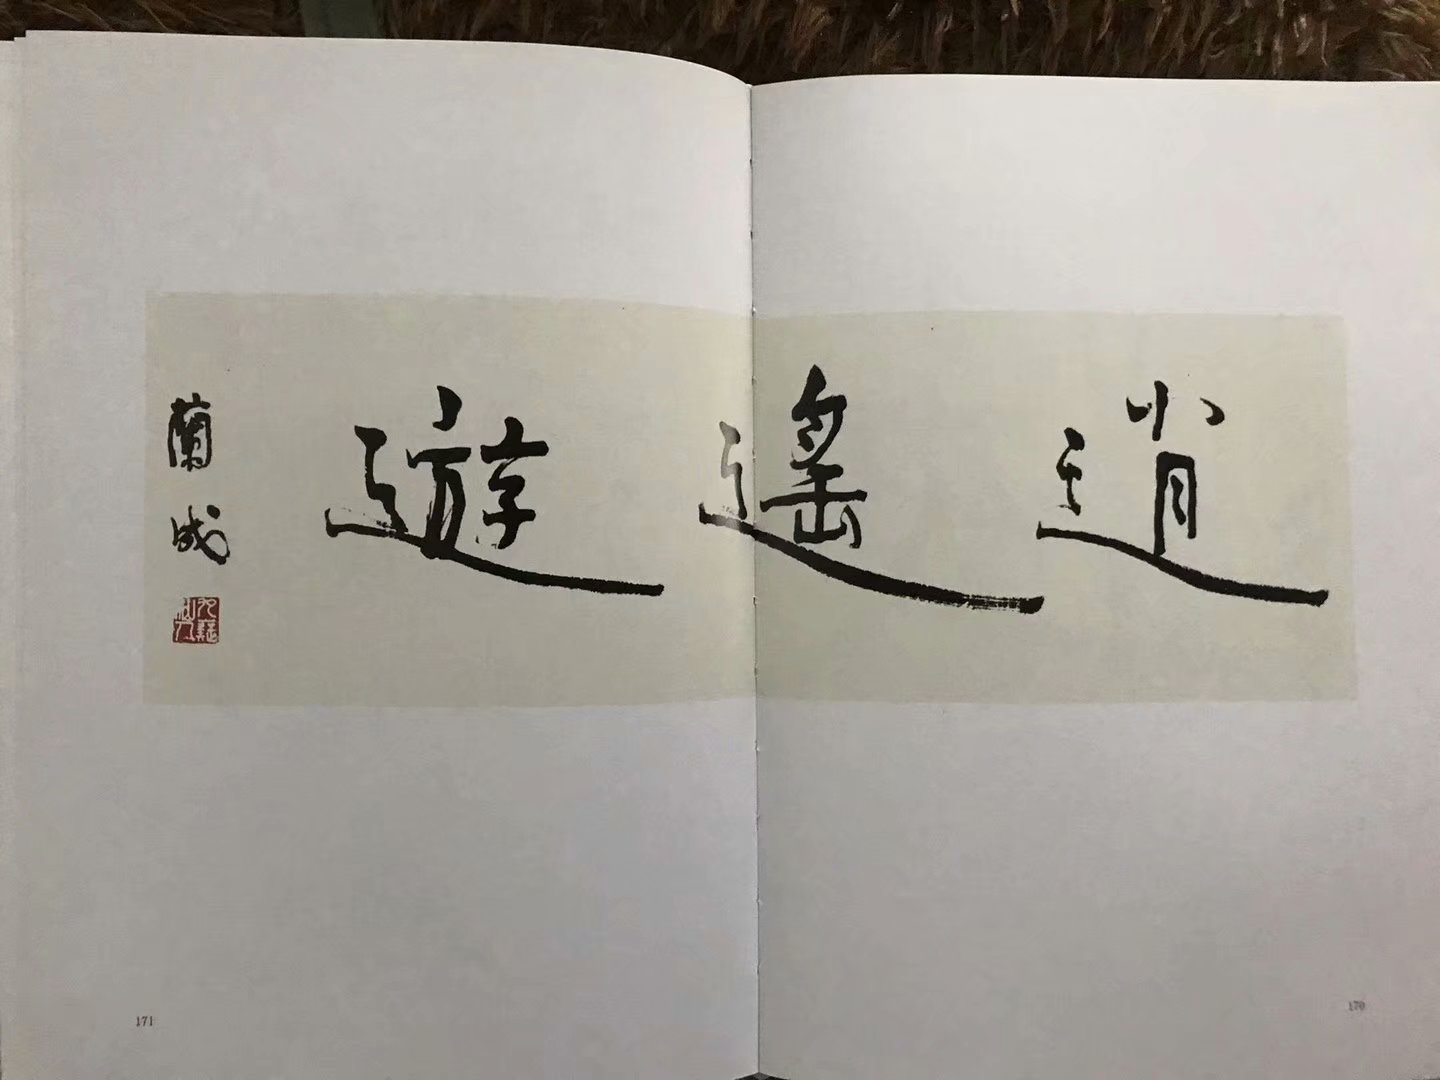 逍遙遊
蘭成
170
171